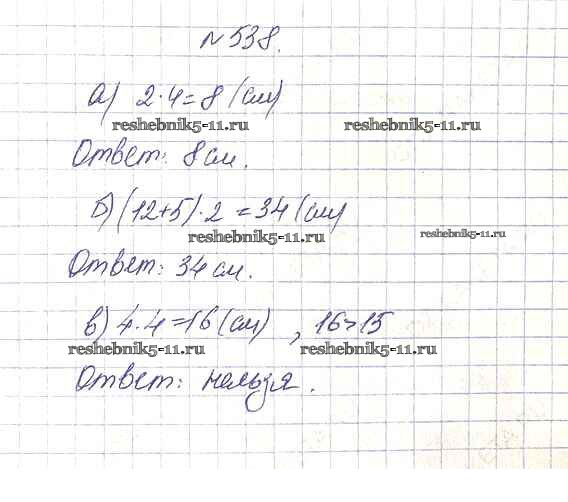 №538.
а) 2·4=8 (см)
reshebnik5-11.ru reshebnik5-11.ru
Ответ: 8 см.
б) (12+5)·2=34 (см)
reshebnik5-11.ru reshebnik5-11.ru
Ответ: 34 см.
в) 4·4=16 (см) , 16>15
reshebnik5-11.ru reshebnik5-11.ru
Ответ: нельзя.